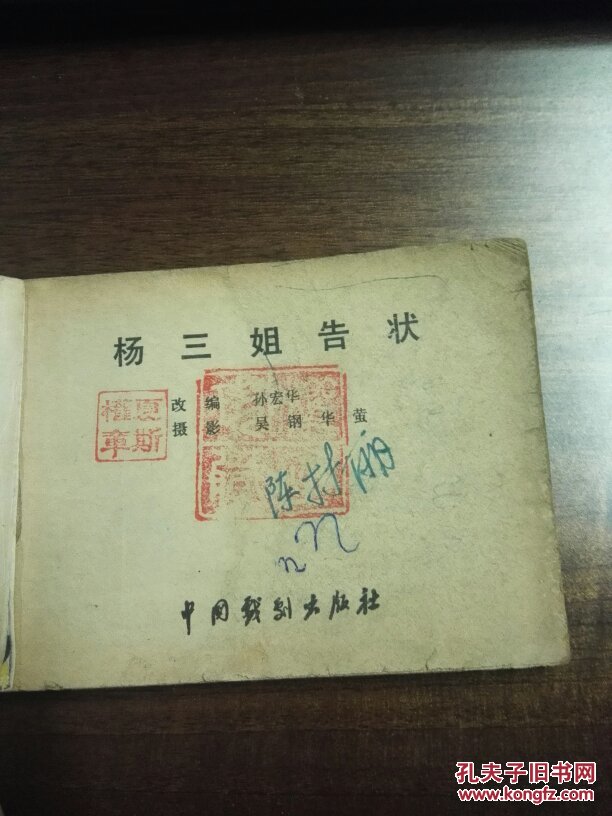 杨三姐告状
改编 孙宏华
摄影 吴钢 华萤
陈
中国戏剧出版社
孔夫子旧书网
www.kongfz.com